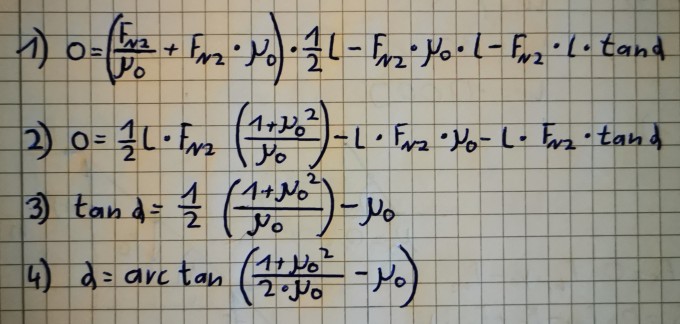 1) 0=(F_N2/μ₀ + F_N2 · μ₀) · 1/2 l − F_N2 · μ₀ · l − F_N2 · l · tan α
2) 0= 1/2 l · F_N2 ((1+μ₀²)/μ₀) − l · F_N2 · μ₀ − l · F_N2 · tan α
3) tan α = 1/2 ((1+μ₀²)/μ₀) − μ₀
4) α = arc tan ((1+μ₀²)/(2·μ₀) − μ₀)